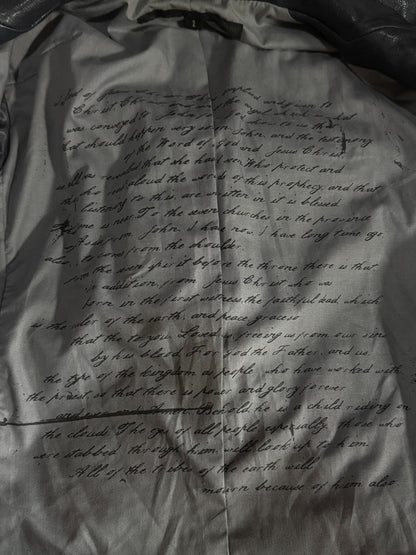 Christ. Christ
was conveyed to
that should happen very soon. John and the testimony
of the Word of God and Jesus Christ
well as revealed that she had seen. Who protect and
that he read aloud the words of this prophecy, and that
listening to this, are written in it is blessed.
time is near. To the seven churches in the province
of Asia from John. I have now, I have long time ago
also, to come from the shoulder.
from the seven spirit before the throne there is that
in addition, from Jesus Christ who was
born in the first witness, the faithful dead, which
is the ruler of the earth, and peace, graceso
that the to you. Loved us, freeing us from our sins
by his blood. For God the Father, and us,
the type of the kingdom as people who have worked with
the priest is that there is power and glory forever
and Amen. Behold, he is a child riding on
the clouds. The eyes of all people especially, those who
were stabbed through him, will look up to him.
All of the tribes of the earth will
mourn because of him also.